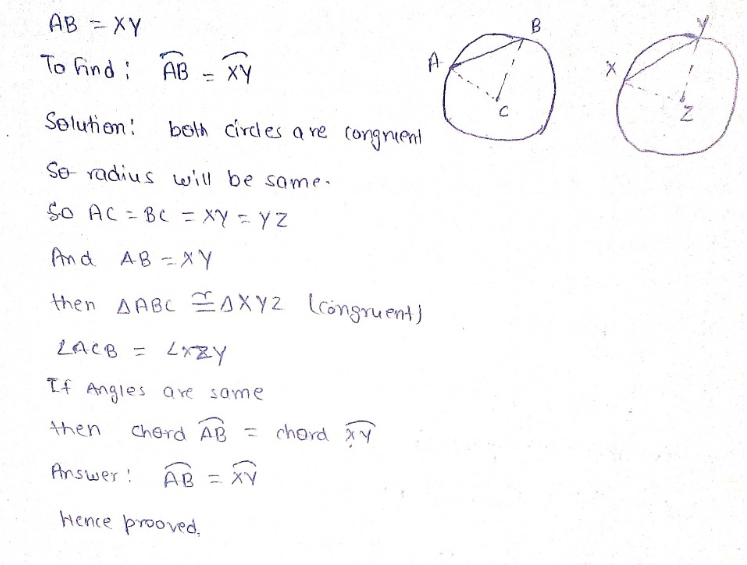 AB = XY
To find : A͡B = X͡Y
Solution: both circles are congruent
So radius will be same.
So AC = BC = XY = YZ
And AB = XY
then ΔABC ≅ ΔXYZ (congruent)
∠ACB = ∠XZY
If Angles are same
then chord A͡B = chord X͡Y
Answer: A͡B = X͡Y
Hence prooved.
A
B
C
X
Y
Z